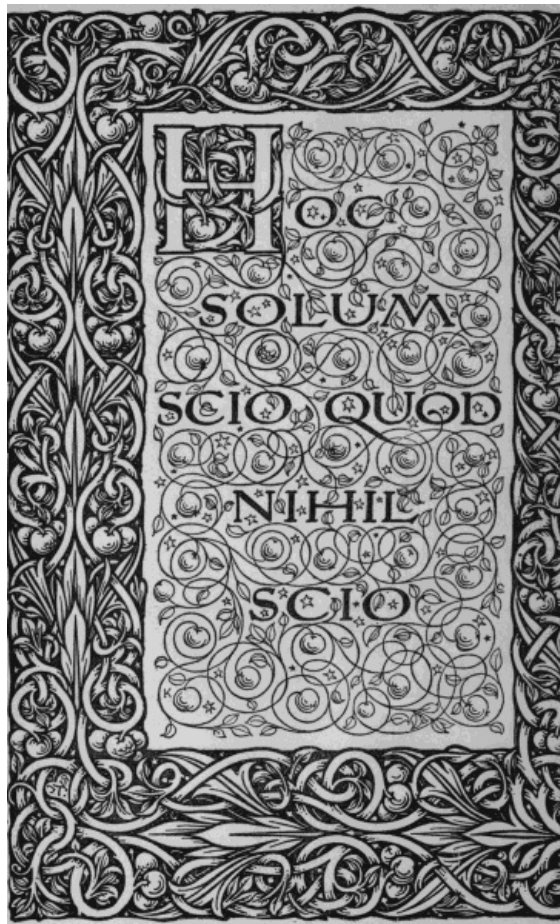 HOC
SOLUM
SCIO QUOD
NIHIL
SCIO